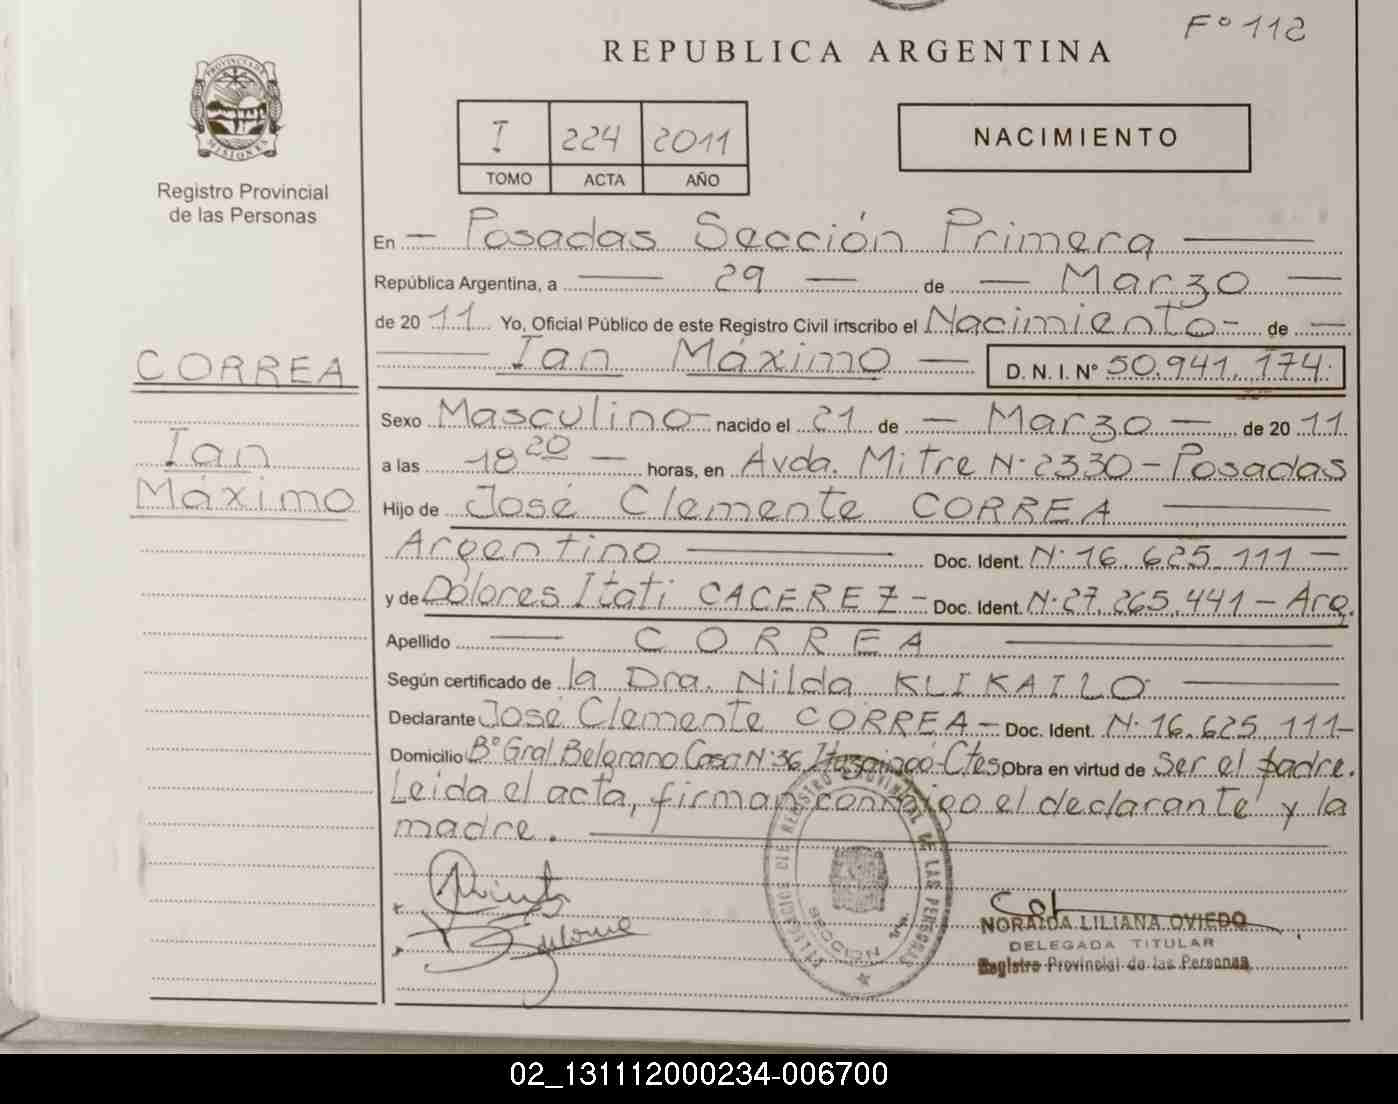 Fº 112
REPUBLICA ARGENTINA
PROVINCIA DE
MISIONES
Registro Provincial
de las Personas
I 224 2011
TOMO ACTA AÑO
NACIMIENTO
En - Posadas Sección Primera
República Argentina, a 29 de Marzo
de 2011 Yo, Oficial Público de este Registro Civil inscribo el Nacimiento - de
Ian Máximo D. N. I. Nº 50.941.174.
CORREA
Ian
Máximo
Sexo Masculino - nacido el 21 de Marzo de 2011
a las 18 20 horas, en Avda. Mitre N· 2330 - Posadas
Hijo de José Clemente CORREA
Argentino Doc. Ident. N· 16.625.111 -
y de Dolores Itati CACEREZ - Doc. Ident. N· 27.265.441 - Arg.
Apellido CORREA
Según certificado de la Dra. Nilda KLIKAILO
Declarante José Clemente CORREA - Doc. Ident. N· 16.625.111 -
Domicilio Bº Gral. Belgrano Casa N· 36 Ituzaingó - Ctes Obra en virtud de ser el padre.
Leida el acta, firman conmigo el declarante y la
madre.
REGISTRO PROVINCIAL DE LAS PERSONAS
SECCION
NORAIDA LILIANA OVIEDO
DELEGADA TITULAR
Registro Provincial de las Personas
02_131112000234-006700